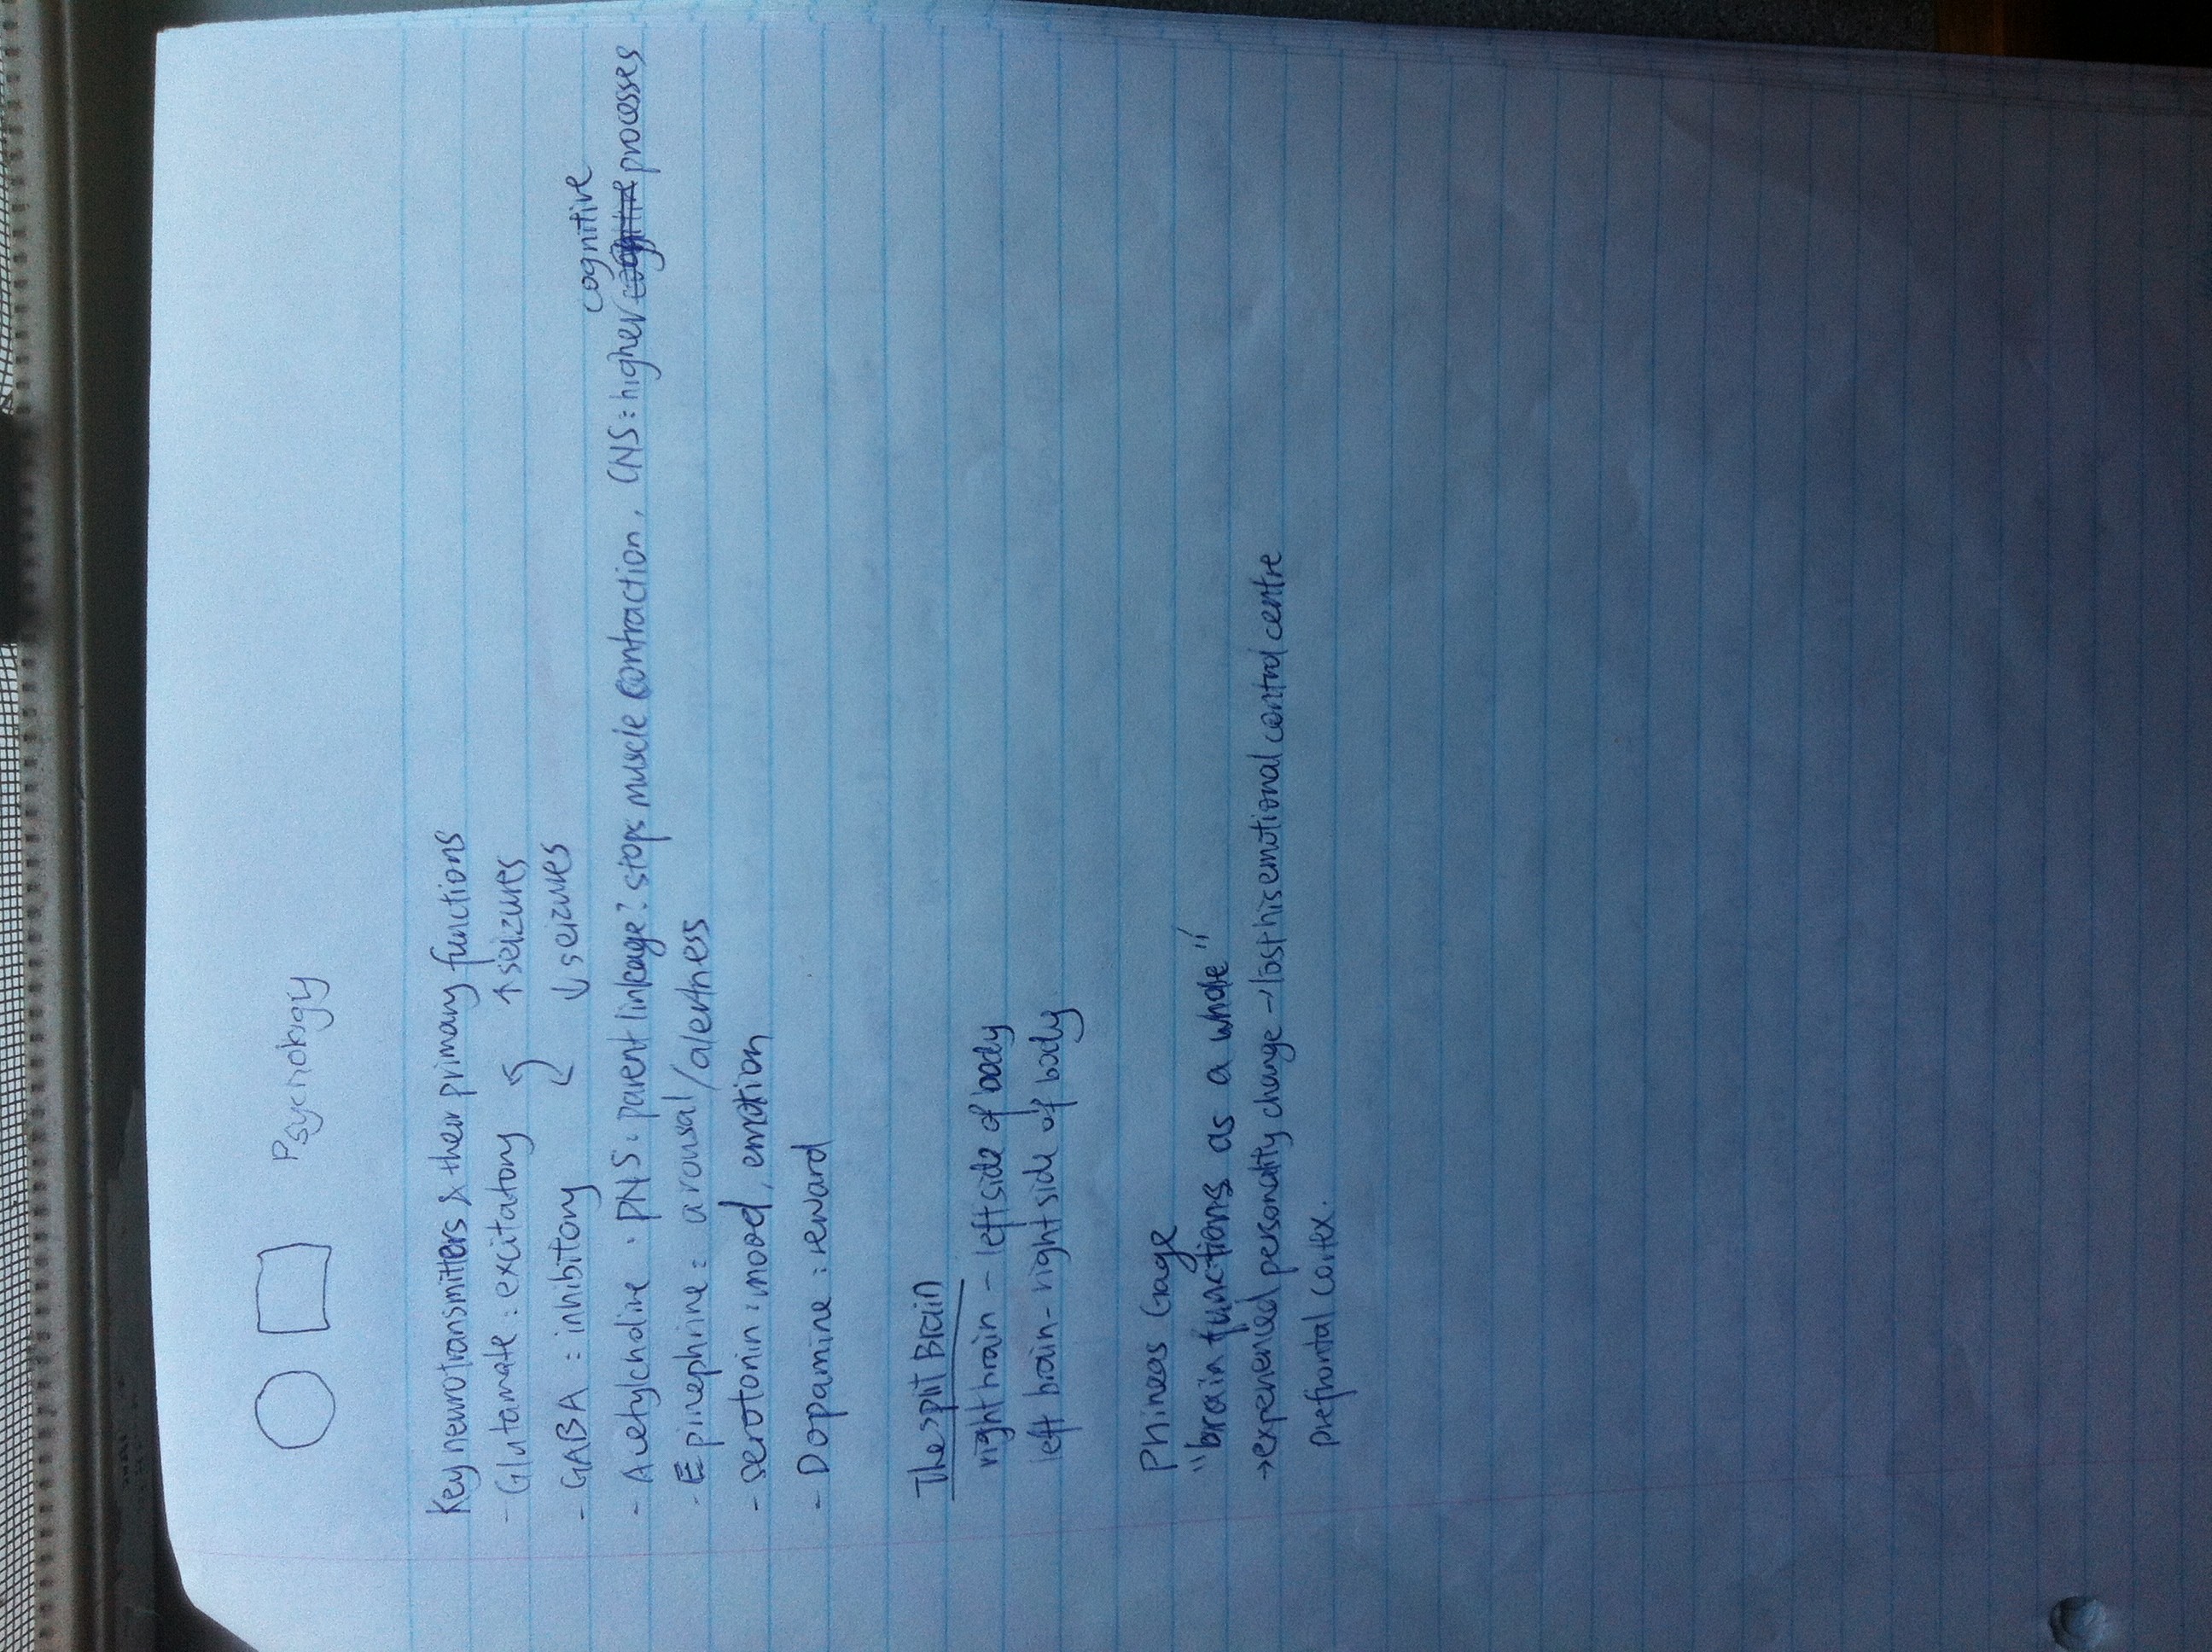 Psychology
Key neurotransmitters & their primary functions
- Glutamate : excitatory ↑ seizures
- GABA : inhibitory ↓ seizures
cognitive
- Acetylcholine : PNS : parent linkage? stops muscle contraction, CNS : higher processes
- Epinephrine : arousal/alertness
- serotonin : mood, emotion
- Dopamine : reward
The split Brain
right brain - left side of body
left brain - right side of body
Phineas Gage
"brain functions as a whole"
→ experienced personality change → lost his emotional control centre
prefrontal cortex.